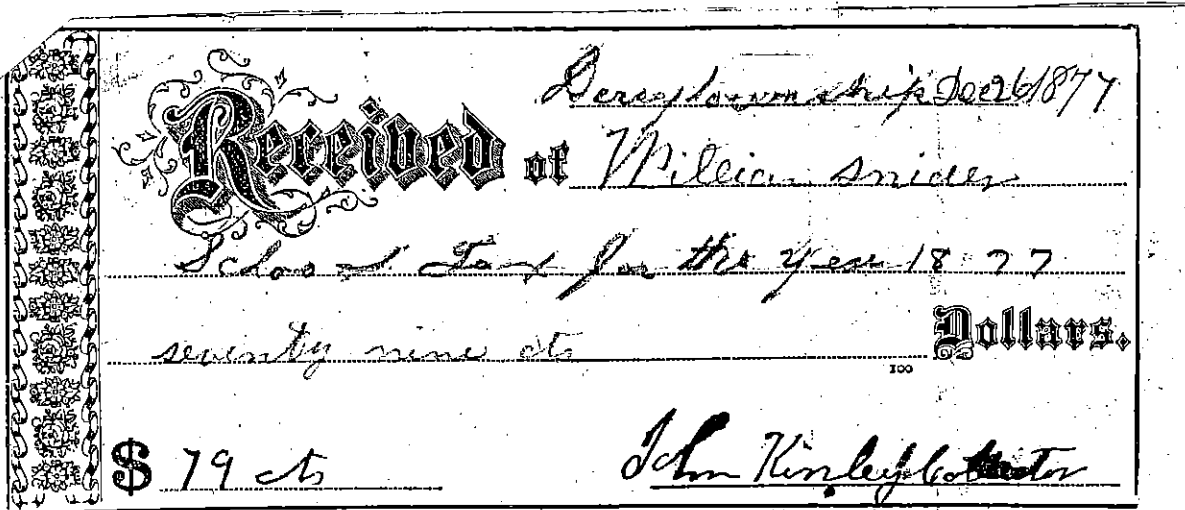 Derry township Dec 26 1877
Received of William Snider
School Tax for the year 1877
seventy nine cts Dollars.
100
$ 79 cts John Kinley Collector